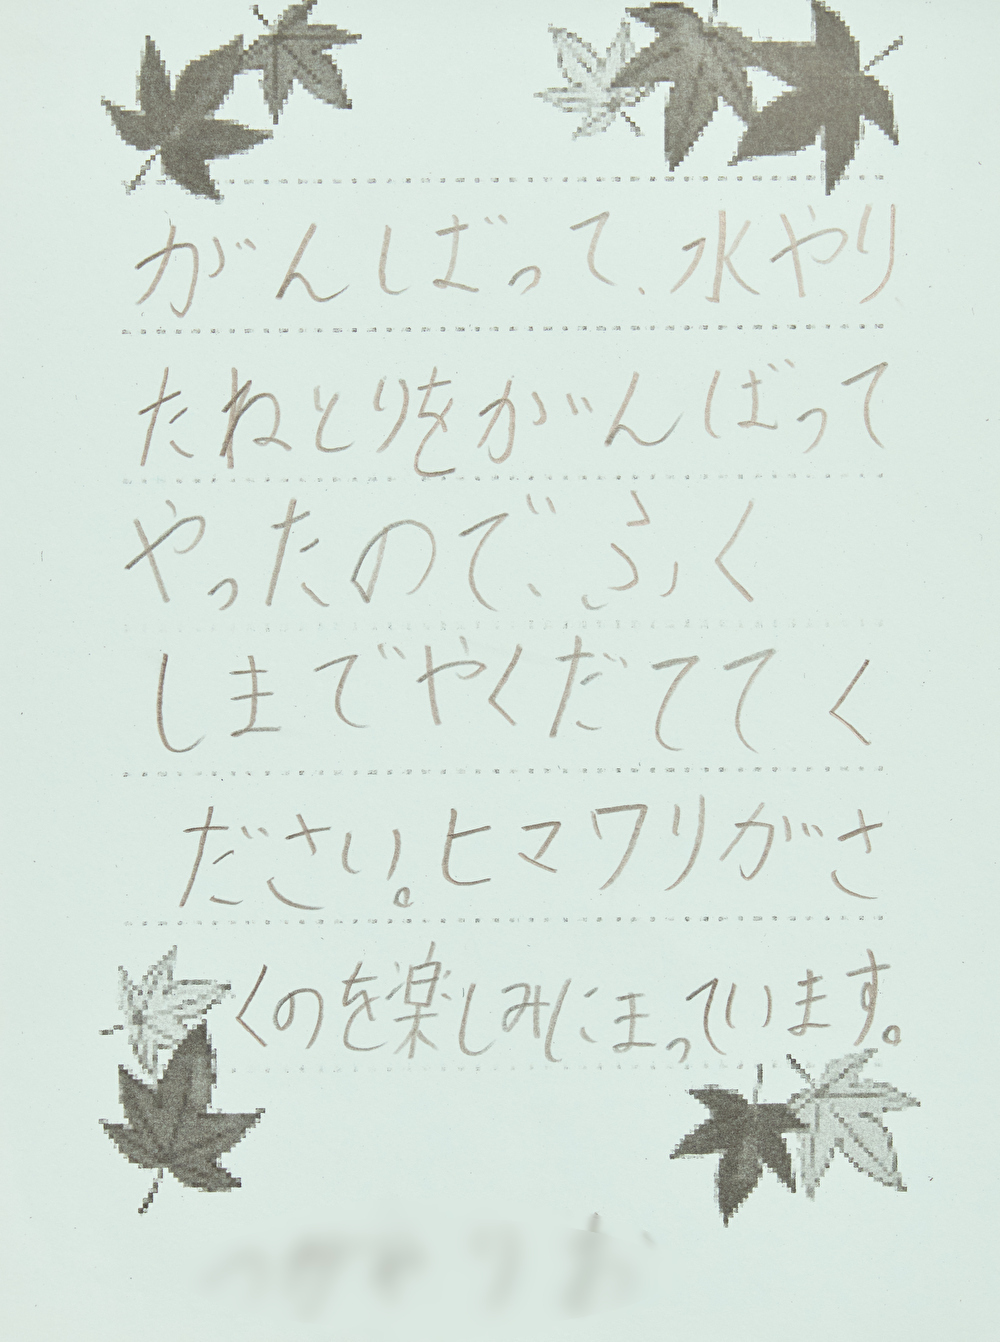 がんばって、水やり
たねとりをがんばって
やったので、ふく
しまでやくだててく
ださい。ヒマワリがさ
くのを楽しみにまっています。